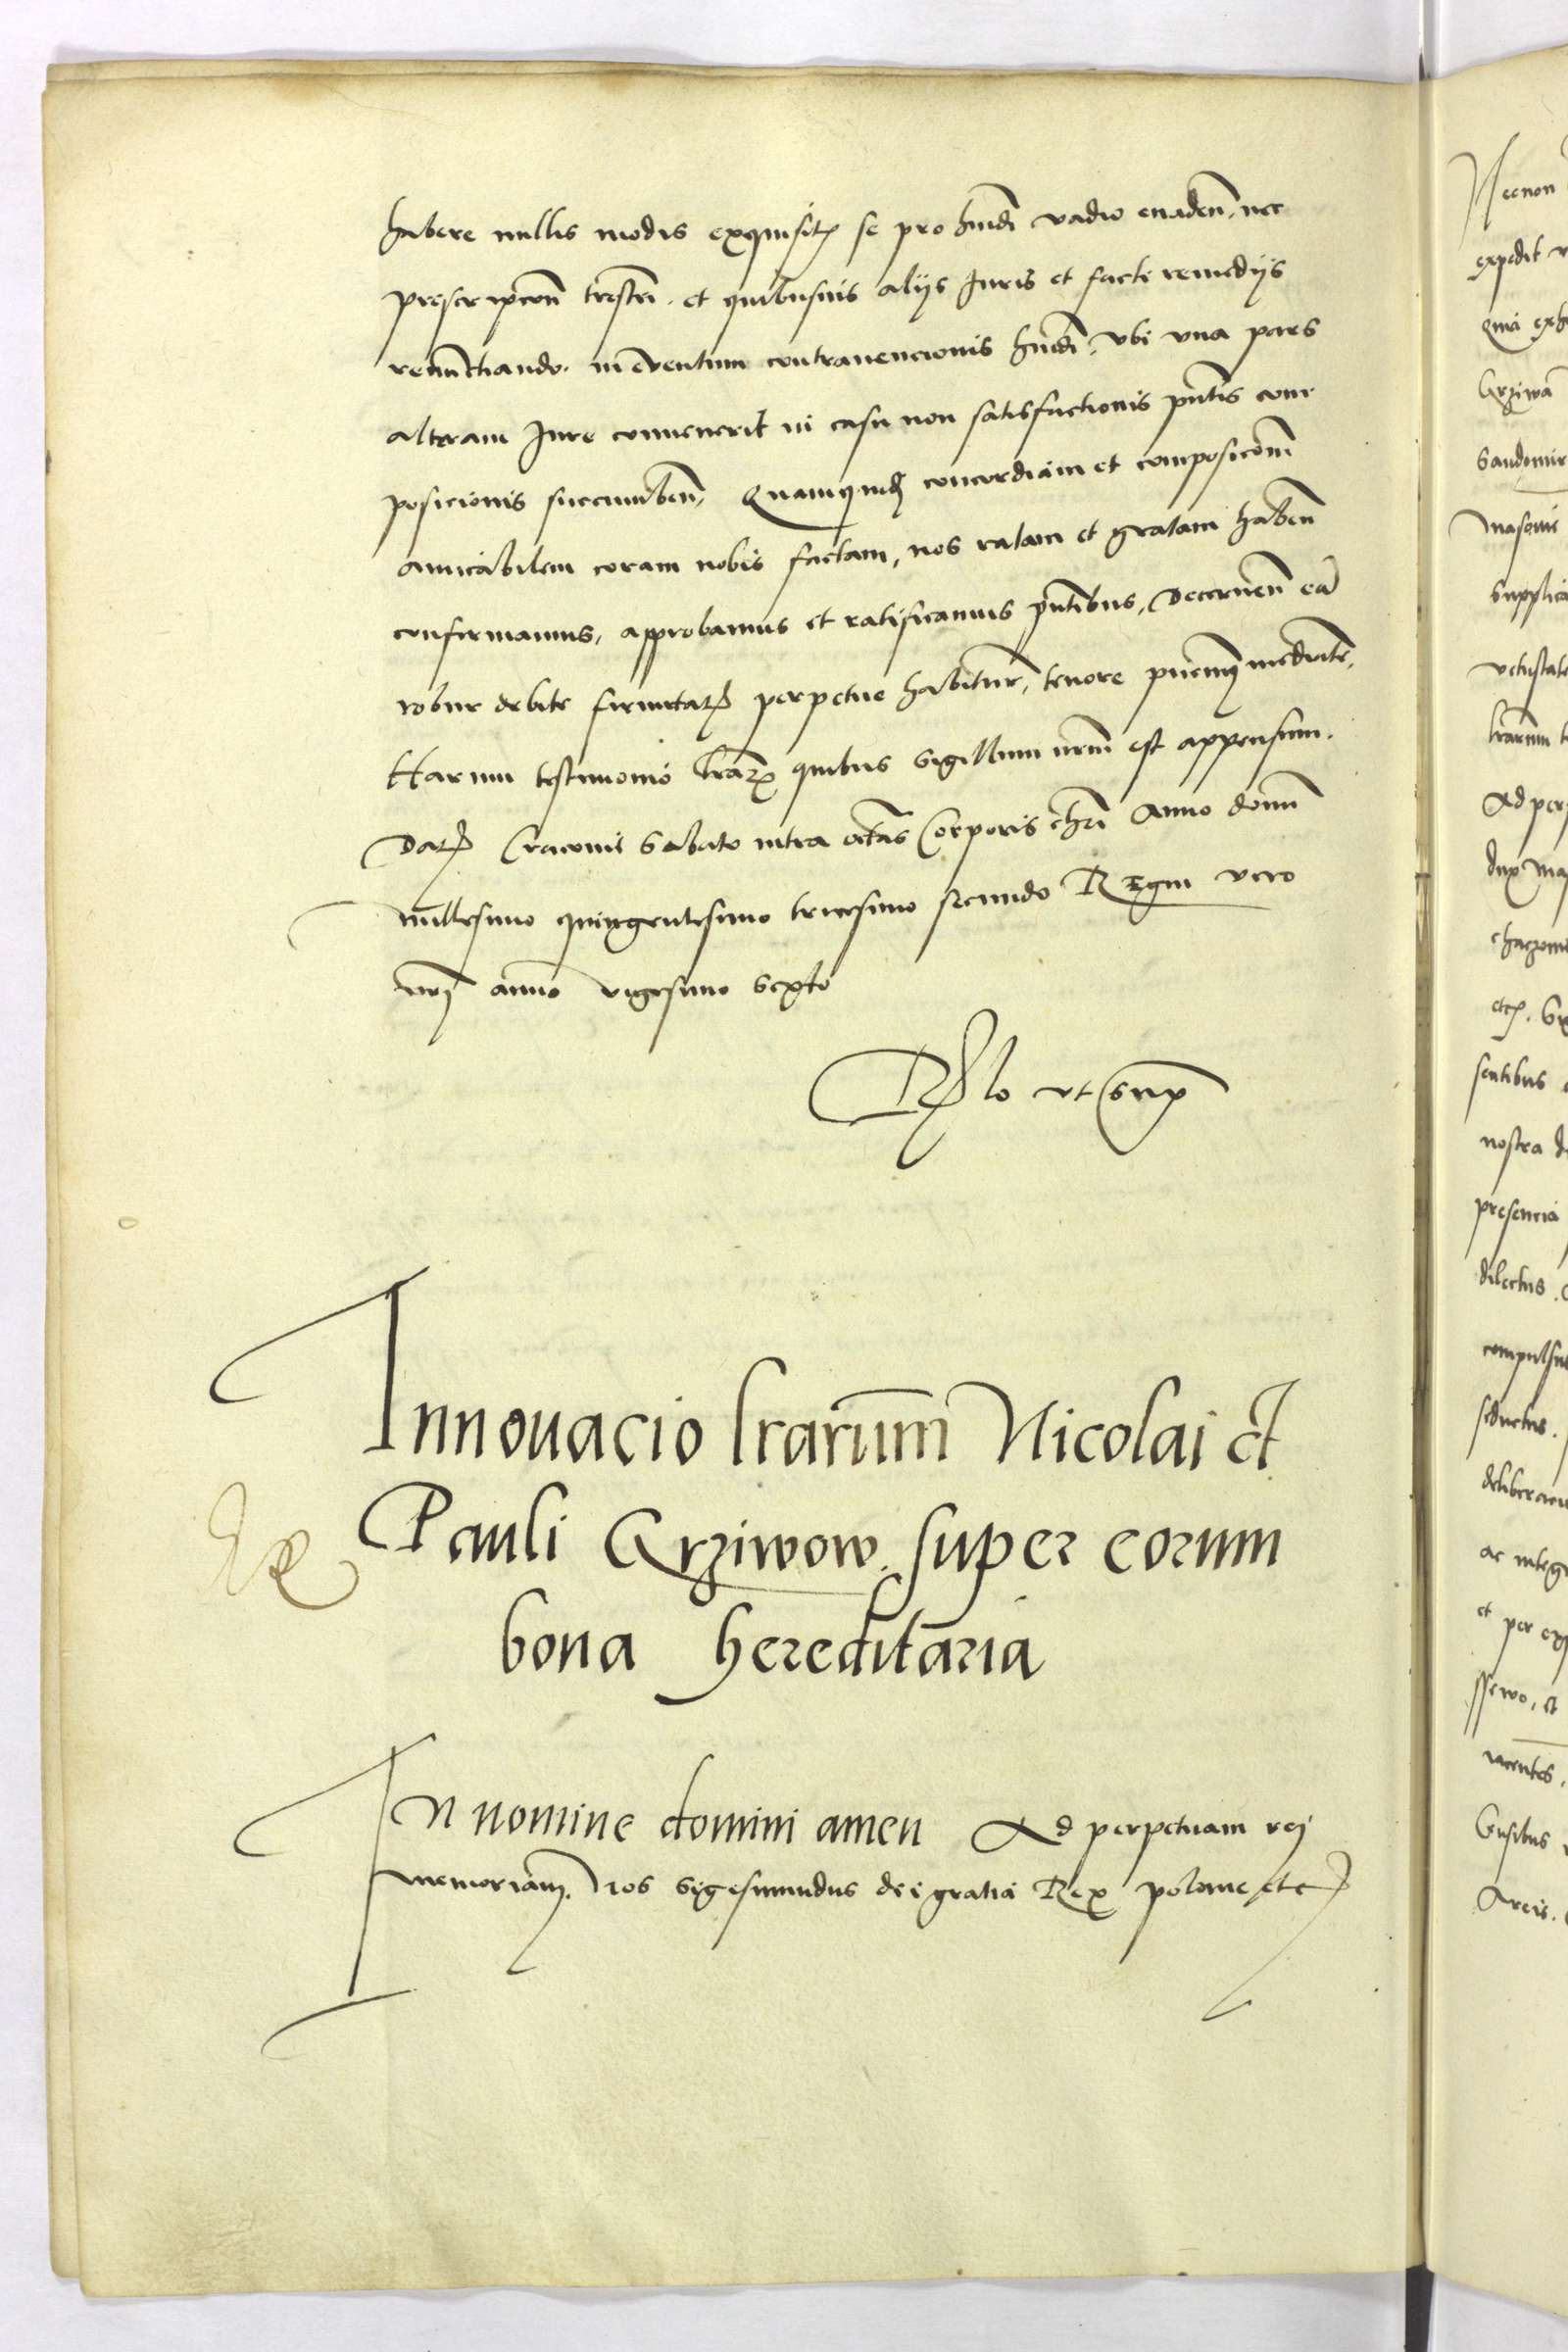 habere nullis modis exquisitꝭ se pro hmōi vadio evadeñ, nec
prescripcōni terrestri. et quibusuis alijs Juris et facti remedijs
renuncciando. in eventum contravencionis hmōi. vbi vna pars
alteram Jure convenerit in casu non satisfactionis pñtis com
posicionis succumbeñ, Quamquidẽ concordiam et composicōm
amicabilem coram nobis factam, nos ratam et gratam habeñ
confirmamus, approbamus et ratificamus pñtibus, Decerneñ eā
robur debite firmitatꝭ perpetue habiturā, tenore pñciumqꝫ mediañte,
Harum testimonio lrarꝝ quibus Sigillum nrm̄ est appensum.
Datꝭ Cracouie Sabato intra octāas Corporis chrī Anno domi
millesimo quingentesimo tricesimo secundo Regni vero
nrī anno vigesimo Sexto
Rlo vt Supᵃ
Innouacio lrarum̄ Nicolai et
Pauli Grziwow. super eorum
bona hereditaria
In nomine domini amen Ad perpetuam rej
memoriam. Nos Sigesmundus dei gratia Rex polonie etcꝭ
Necnon
expedit
Qui
Grziwa
Sandomir
Masouie
supplica
vetustate
lrarum̄
Ad per
dux Ma
etcꝭ.
sentibus
nostra
presencia
dilectus.
compulsus
seductus.
ac integ
et per
ssewo, et
Censibus